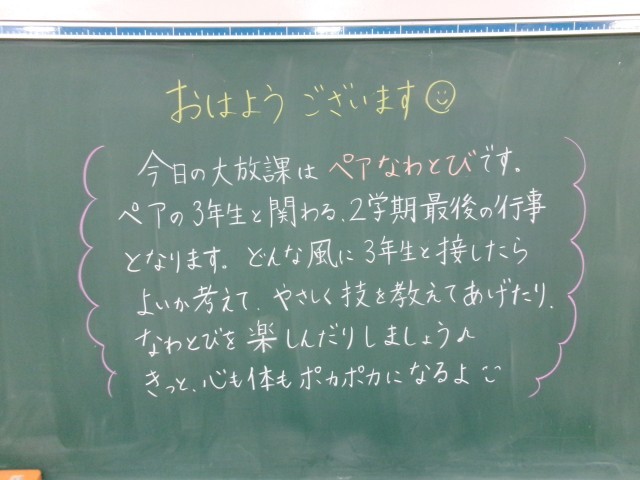 おはようございます
今日の大放課はペアなわとびです。
ペアの3年生と関わる、2学期最後の行事
となります。どんな風に3年生と接したら
よいか考えて、やさしく技を教えてあげたり、
なわとびを楽しんだりしましょう♪
きっと、心も体もポカポカになるよ